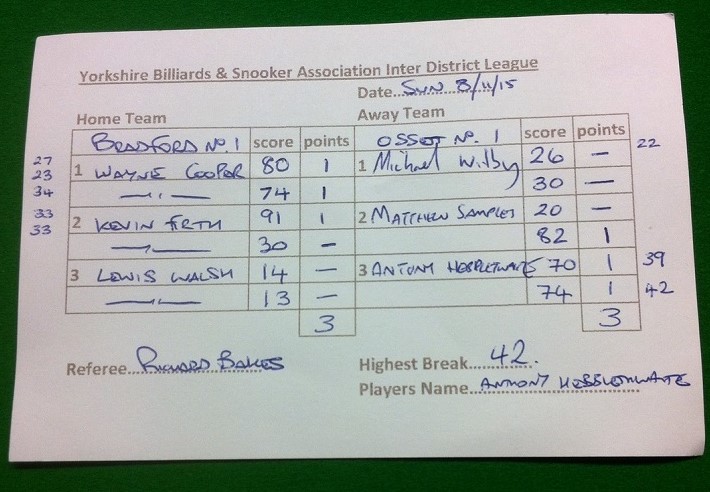 Yorkshire Billiards & Snooker Association Inter District League
Date...SUN 8/11/15
Home Team Away Team
BRADFORD NO. 1 score points OSSET NO. 1 score points 22
27
23 1 WAYNE COOPER 80 1 1 Michael Wilby 26 —
34 —"— 74 1 30 —
33
33 2 KEVIN FIRTH 91 1 2 MATTHEW SAMPLES 20 —
—"— 30 — 82 1
3 LEWIS WALSH 14 — 3 ANTONY HOBBLETWAITE 70 1 39
—"— 13 — 74 1 42
3 3
Referee...RICHARD BAKES Highest Break...42.
Players Name...ANTHONY HEBBLETHWAITE